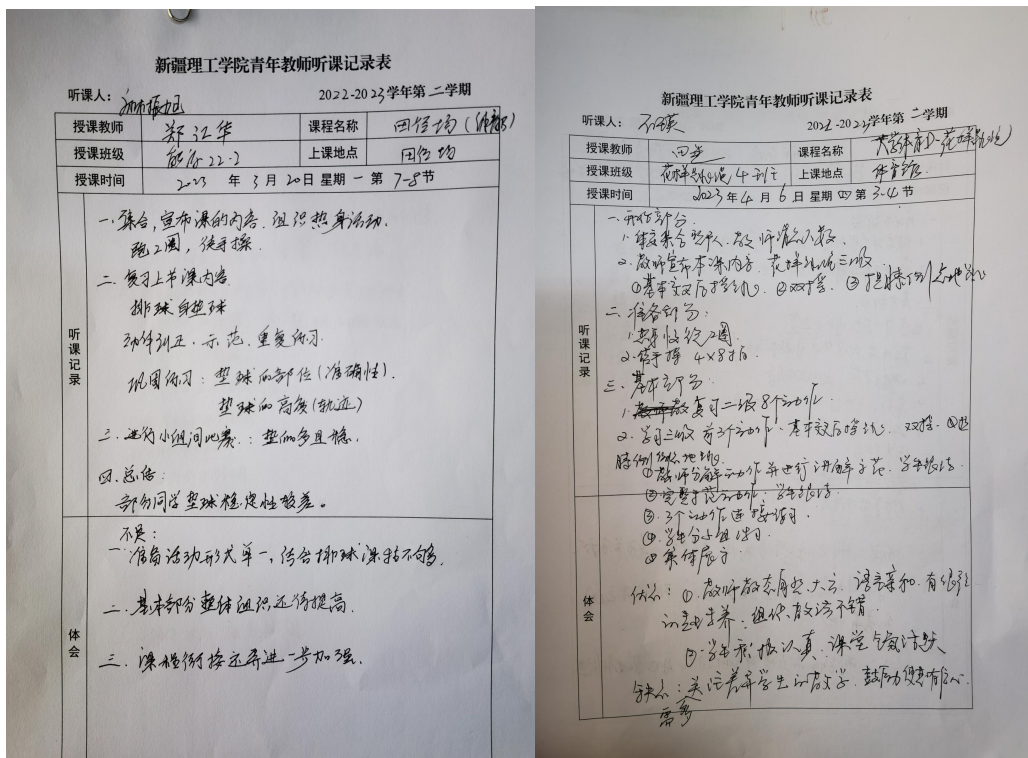 新疆理工学院青年教师听课记录表
听课人：
2022-2023学年第二学期
授课教师 郑江华 课程名称 田径场（体育）
授课班级 22-2 上课地点 田径场
授课时间 2023年3月20日 星期一 第7-8节
听课记录
一、集合，宣布课的内容，组织热身活动.
跑2圈，徒手操.
二、复习上节课内容
排球自垫球
动作纠正、示范、重复练习.
巩固练习：垫球的部位（准确性）.
垫球的高度（轨迹）
三、进行小组间比赛：垫的多且稳.
四、总结：
部分同学垫球稳定性较差。
体会
不足：
一、准备活动形式单一，结合排球课特不够.
二、基本部分整体组织还待提高.
三、课程衔接还需进一步加强.
新疆理工学院青年教师听课记录表
听课人：
2022-2023学年第二学期
授课教师 课程名称 大学体育
授课班级 花样 4班 上课地点 体育馆
授课时间 2023年4月6日 星期四 第3-4节
听课记录
一、开始部分.
1. 体委集合整队、教师清点人数.
2. 教师宣布本课内容，花样跳绳三级
①基本交叉后摇跳 ②双摇
二、准备部分：
1. 热身 2圈.
2. 徒手操 4×8拍.
三、基本部分
1. 复习二级8个动作.
2. 学习三级前3个动作、基本交叉后摇跳、双摇、
①教师分解动作并进行讲解示范、学生跟练
②完整示范动作；学生跟练.
③、3个动作连接练习.
④、学生分小组练习
集体展示
体会
优点：①、教师教态自然、大方、语言亲和、有很强
的专业素养、组织教法不错.
②、学生积极认真、课堂气氛活跃
缺点：关注差异学生的教学、鼓励
需多